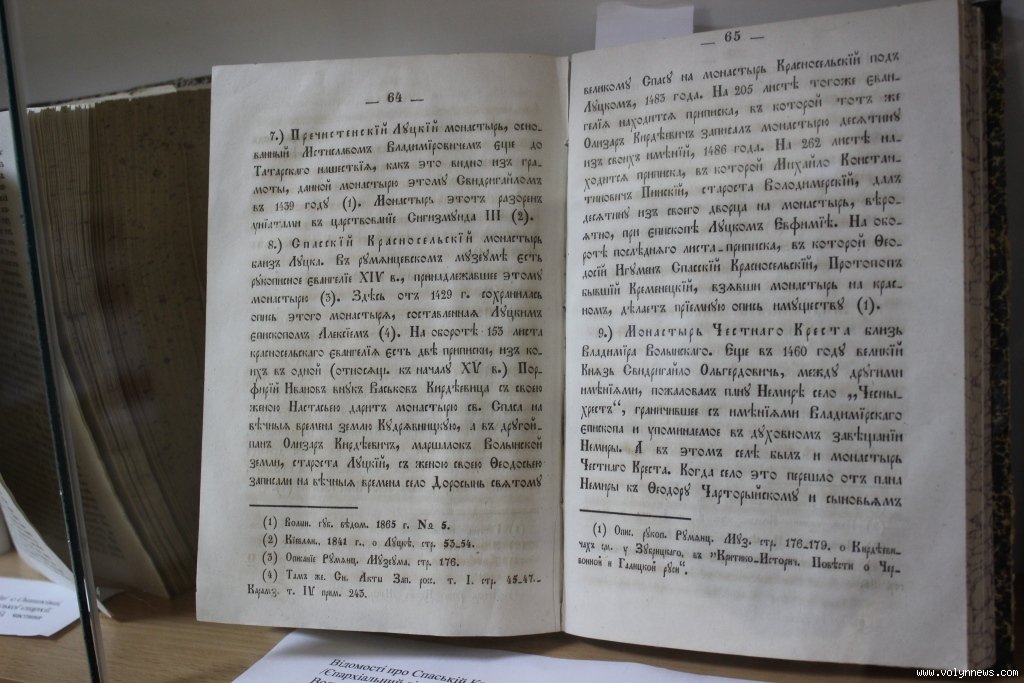 — 64 —
7.) Пречистенскій Луцкій монастырь, осно-
ванный Мстиславомъ Владиміровичемъ еще до
Татарскаго нашествія, какъ это видно изъ гра-
моты, данной монастырю этому Свидригайломъ
въ 1439 году (1). Монастырь этотъ разоренъ
уніатами въ царствованіе Сигизмунда III (2).
8.) Спасскій Красносельскій монастырь
близъ Луцка. Въ румянцевскомъ музеумѣ есть
рукописное Евангеліе XIV в., принадлежавшее этому
монастырю (3). Здѣсь отъ 1429 г. сохранилась
опись этого монастыря, составленная Луцкимъ
Епископомъ Алексіемъ (4). На оборотѣ 153 листа
красносельскаго Евангелія есть двѣ приписки, изъ ко-
ихъ въ одной (относящ. къ началу XV в.) Пор-
фирій Ивановъ внукъ Васьковъ Кирдѣевича съ своею
женою Настасьею даритъ монастырю св. Спаса на
вѣчныя времена землю Кудрявицкую, а въ другой-
панъ Олизаръ Кирдѣевич, маршалокъ Волынской
земли, староста Луцкій, съ женою своею Ѳеодосьею
записали на вѣчныя времена село Доросынь святому
(1) Волын. губ. вѣдом. 1865 г. № 5.
(2) Кіевлян. 1841 г., о Луцкѣ, стр. 53-54.
(3) Описаніе Румянц. Музеума. стр. 176.
(4) Тамъ же. Сн. Акты Зап. росс. т. I. стр. 45-47.-
Карамз. т. IV прим. 243.
— 65 —
великому Спасу на монастырь Красносельскій подъ
Луцкомъ, 1483 года. На 205 листѣ тогоже Еван-
гелія находится приписка, въ которой тотъ же
Олизаръ Кирдѣевичъ записалъ монастырю десятину
изъ своихъ имѣній, 1486 года. На 262 листѣ на-
ходится приписка, въ которой Михайло Констан-
тиновичъ Пинскій, староста Володимерскій, далъ
десятину изъ своего дворца на монастырь, вѣро-
ятно, при Епископѣ Луцкомъ Евфиміѣ. На обо-
ротѣ послѣдняго листа-приписка, въ которой Ѳео-
досій Игуменъ Спасскій Красносельскій, Протопопъ
бывшій Кременецкій, взявши монастырь на крас-
номъ, дѣлаетъ пріемную опись имуществу (1).
9.) Монастырь Честнаго Креста близь
Владиміра Волынскаго. Еще въ 1460 году великій
Князь Свидригайло Ольгердовичъ, между другими
имѣніями, пожаловалъ пану Немирѣ село „Чесны-
хрестъ“, граничившее съ имѣніями Владимірскаго
Епископа и упоминаемое въ духовномъ завѣщаніи
Немиры. А въ этомъ селѣ былъ и монастырь
Честнаго Креста. Когда село это перешло отъ пана
Немиры къ Ѳеодору Чарторыйскому и сыновьямъ
(1) Опис. рукоп. Румянц. Муз. стр. 176-179. о Кирдѣеви-
чахъ см. у Зубрицкаго, въ "Критико-Историч. Повѣсти о Чер-
вонной и Галицкой руси".
Відомості про Спаській
/Єпархіальний
www.volynnews.com